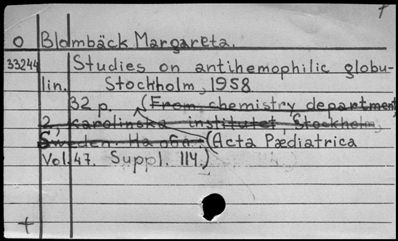 O Blombäck Margareta.
33244 Studies on antihemophilic globu-
lin. Stockholm, 1958
32 p. (From chemistry department
2, Karolinska institutet, Stockholm,
Sweden.
(Acta Pædiatrica
Vol. 47. Suppl. 114.)